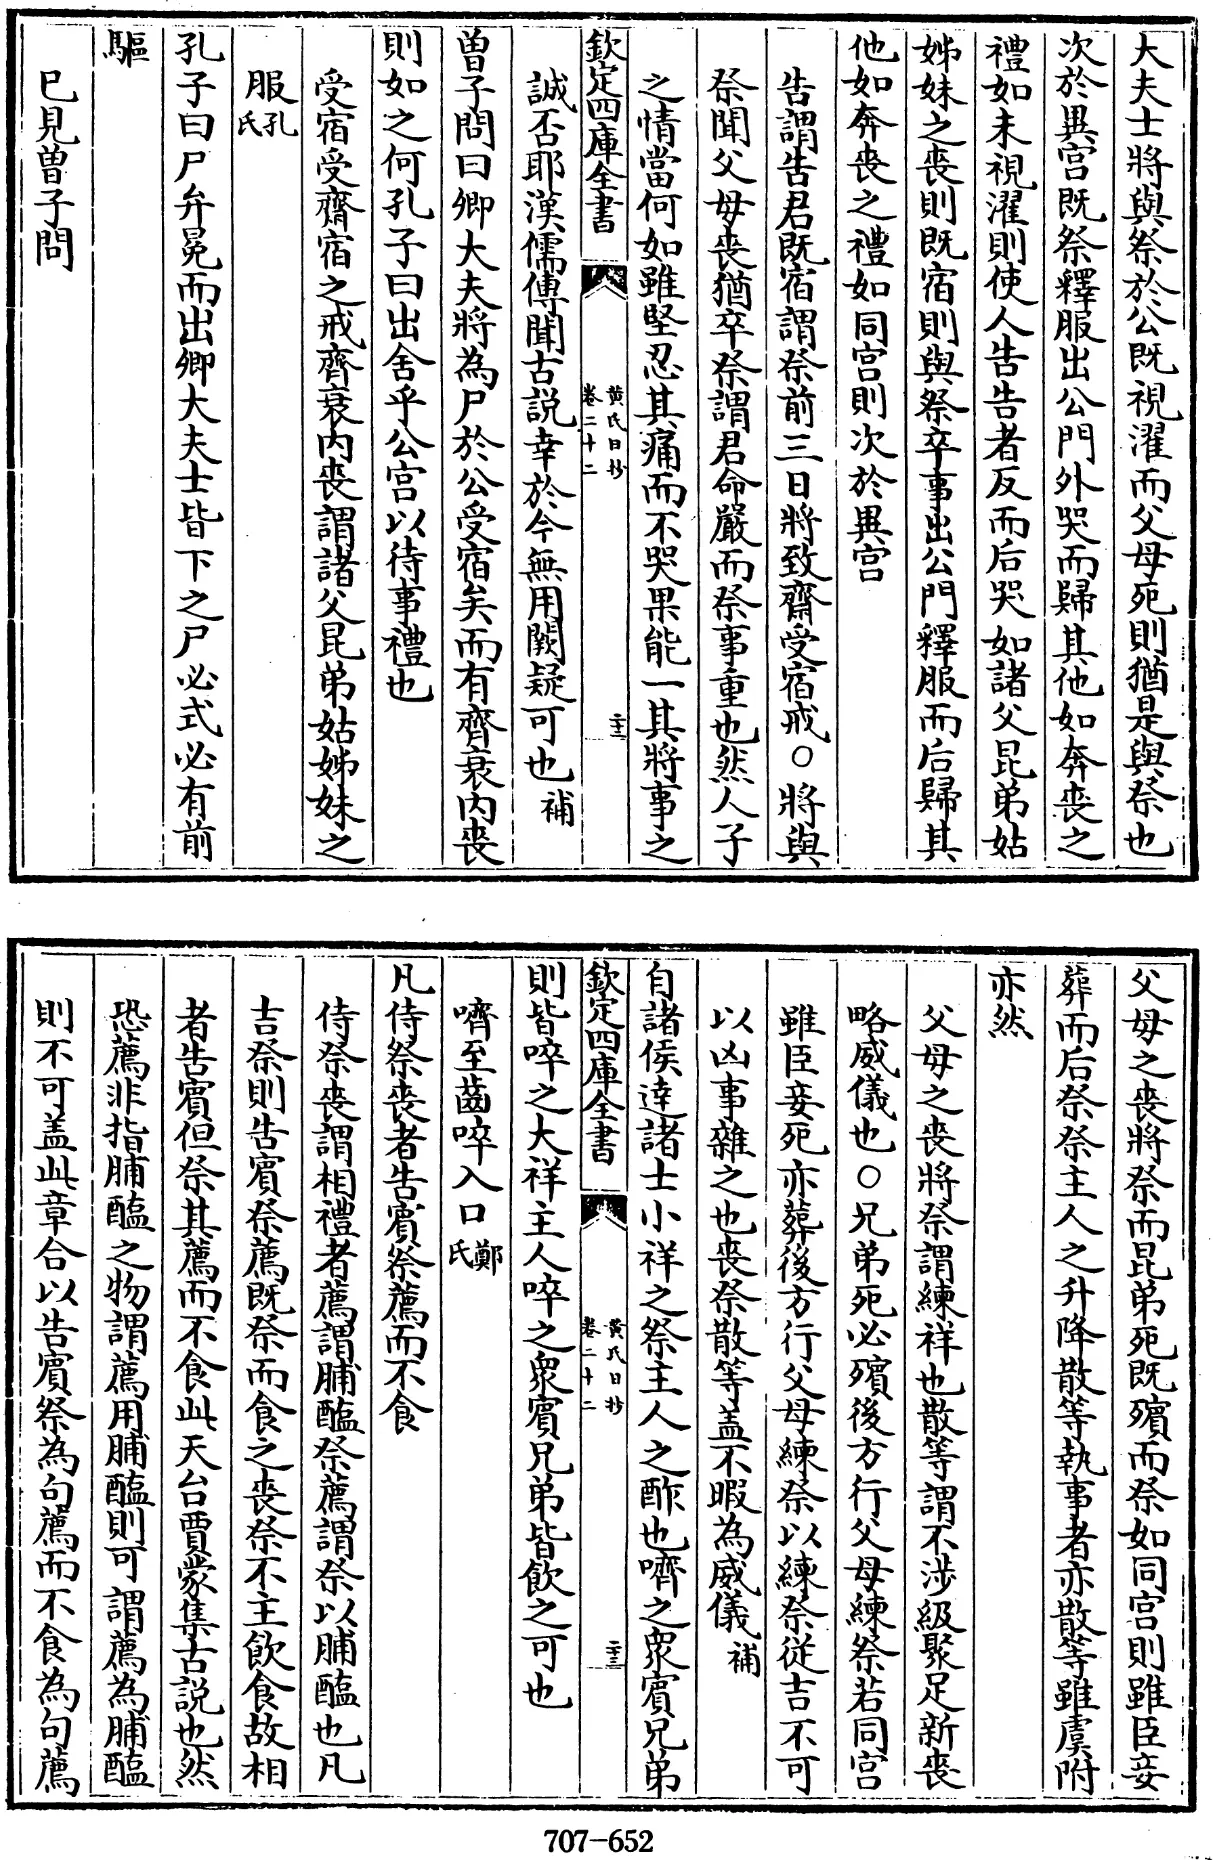 大夫士將與祭於公既視濯而父母死則猶是與祭也
次於異宫既祭釋服出公門外哭而歸其他如奔喪之
禮如未視濯則使人告告者反而后哭如諸父昆弟姑
姊妹之喪則既宿則與祭卒事出公門釋服而后歸其
他如奔喪之禮如同宫則次於異宫
告謂告君既宿謂祭前三日將致齋受宿戒○將與
祭聞父母喪猶卒祭謂君命嚴而祭事重也然人子
之情當何如雖堅忍其痛而不哭果能一其將事之
欽定四庫全書
黄氏日抄
卷二十二
二十三
誠否耶漢儒傳聞古説幸於今無用闕疑可也補
曽子問曰卿大夫將為尸於公受宿矣而有齊衰内喪
則如之何孔子曰出舍乎公宫以待事禮也
受宿受齋宿之戒齊衰内喪謂諸父昆弟姑姊妹之
服孔氏
孔子曰尸弁冕而出卿大夫士皆下之尸必式必有前
驅
已見曽子問
父母之喪將祭而昆弟死既殯而祭如同宫則雖臣妾
葬而后祭祭主人之升降散等執事者亦散等雖虞附
亦然
父母之喪將祭謂練祥也散等謂不涉級聚足新喪
略威儀也○兄弟死必殯後方行父母練祭若同宫
雖臣妾死亦葬後方行父母練祭以練祭從吉不可
以凶事雜之也喪祭散等盖不暇為威儀補
自諸侯達諸士小祥之祭主人之酢也嚌之衆賔兄弟
欽定四庫全書
黄氏日抄
卷二十二
二十三
則皆啐之大祥主人啐之衆賔兄弟皆飲之可也
嚌至齒啐入口鄭氏
凡侍祭喪者告賔祭薦而不食
侍祭喪謂相禮者薦謂脯醢祭薦謂祭以脯醢也凡
吉祭則告賔祭薦既祭而食之喪祭不主飲食故相
者告賔但祭其薦而不食此天台賈蒙集古説也然
恐薦非指脯醢之物謂薦用脯醢則可謂薦為脯醢
則不可盖此章合以告賔祭為句薦而不食為句薦
707-652